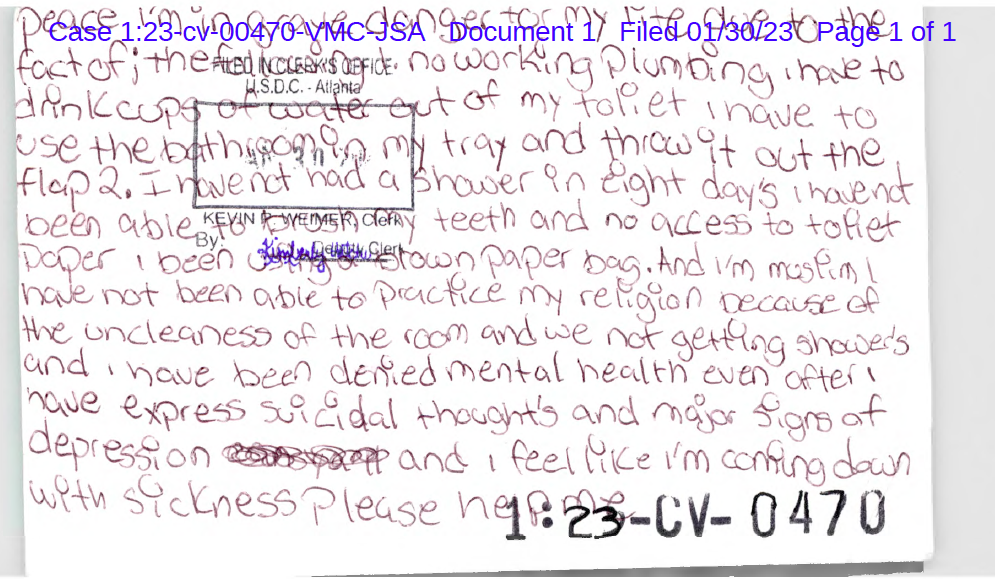 peace i'm in grave danger for my life due to the
Case 1:23-cv-00470-VMC-JSA Document 1 Filed 01/30/23 Page 1 of 1
fact of; the no working Plumbing i have to
FILED IN CLERK'S OFFICE
U.S.D.C. - Atlanta
drink cups of water out of my toliet i have to
use the bathroom in my tray and throw it out the
flap 2. I havenct had a shower in eight day's i havenct
KEVIN P. WEIMER, Clerk
been able to brush my teeth and no access to toliet
By: Deputy Clerk
paper i been using a brown paper bag. And i'm muslim I
have not been able to practice my religion because of
the uncleaness of the room and we not getting showers
and i have been denied mental health even after i
have express suicidal thought's and major signs of
depression and i feel like i'm coming down
with sickness Please help me
1:23-CV-0470